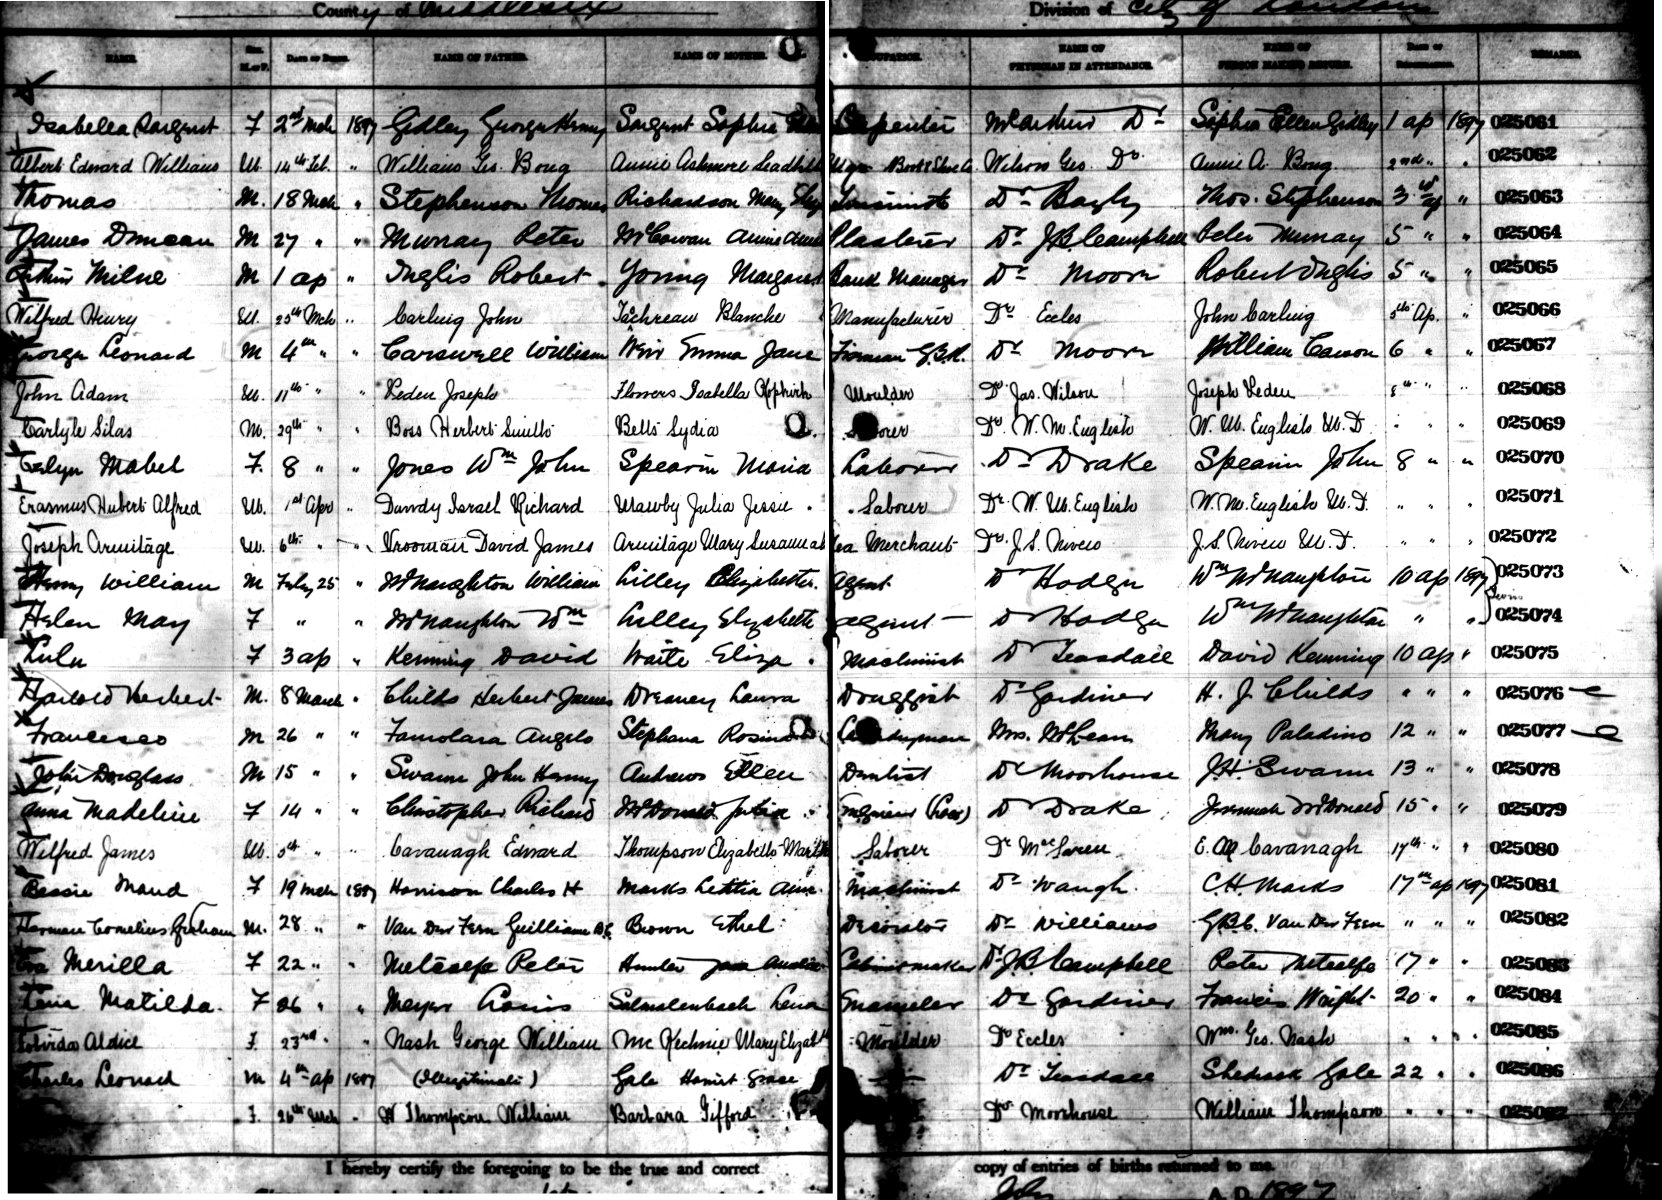 County of Middlesex Division of City of London
NAME. Sex. M. or F. DATE OF BIRTH. NAME OF FATHER. NAME OF MOTHER. OCCUPATION. NAME OF PHYSICIAN IN ATTENDANCE. NAME OF PERSON MAKING RETURN. DATE OF REGISTRATION. REMARKS.
Isabella Sargent F 2nd Mch 1897 Gidley George Henry Sargent Sophia Carpenter McArthur Dr Sophia Ellen Gidley 1 ap 1897 025061
Albert Edward Williams M. 14th Feb. " Williams Geo. Boug Annie Ashmore Boot & Shoe Wilson Geo. Dr. Annie A. Boug 2nd " " 025062
Thomas M. 18 Mch " Stephenson Thomas Richardson Mary Dr Bayly Thos. Stephenson 3 ap " 025063
James Duncan M 27 " " Murray Peter McCowan Annie Plasterer Dr J B Campbell Peter Murray 5 " " 025064
Arthur Milne M 1 ap " Inglis Robert Young Margaret Bank Manager Dr Moore Robert Inglis 5 " " 025065
Wilfred Henry M. 25th Mch " Carling John Blanche Manufacturer Dr Eccles John Carling 5th Ap. " 025066
George Leonard M 4th " " Carswell William Weir Emma Jane Fireman G.T.R. Dr Moore William Carson 6 " " 025067
John Adam M. 11th " " Peden Joseph Flowers Isabella Hopkirk Moulder Dr Jas. Wilson Joseph Peden 8th " " 025068
Carlyle Silas M. 29th " " Boss Herbert Smith Betts Lydia Laborer Dr. W. M. English W. M. English M. D. " " " 025069
Evelyn Mabel F. 8 " " Jones Wm John Spearin Maria Laborer Dr Drake Spearin John 8 " " 025070
Erasmus Hubert Alfred M. 1st Apr " Dandy Israel Richard Mawby Julia Jessie Laborer Dr. W. M. English W. M. English M. D. " " " 025071
Joseph Armitage M. 6th " " Vrooman David James Armitage Mary Susannah Tea Merchant Dr. J. S. Niven J. S. Niven M. D. " " " 025072
Henry William M Feby 25 " McNaughton William Lilley Elizabeth Agent Dr Hodge Wm McNaughton 10 ap 1897 025073
Twins
Helen May F " " McNaughton Wm Lilley Elizabeth agent Dr Hodge Wm McNaughton " " 025074
Lulu F 3 ap " Kenning David Waite Eliza Machinist Dr Teasdall David Kenning 10 ap " 025075
Harold Herbert M. 8 March " Childs Herbert James Dreaney Laura Druggist Dr Gardiner H. J. Childs " " " 025076
Francesco M 26 " " Famolara Angelo Stephana Rosina Mrs. McLean Mary Paladino 12 " " 025077
John Douglass M 15 " " Swann John Henry Andrews Ellen Dentist Dr Moorhouse J.H. Swann 13 " " 025078
Anna Madeline F 14 " " Christopher Richard McDonald Julia Engineer (Loco) Dr Drake Jeremiah McDonald 15 " " 025079
Wilfred James M. 5th " " Cavanagh Edward Thompson Elizabeth Laborer Dr MacLaren Cavanagh 17th " " 025080
Bessie Maud F 19 Mch 1897 Harrison Charles H Marks Letitia Machinist Dr Waugh C. H. Marks 17th ap 1897 025081
Herman Cornelius Graham M. 28 " " Van Der Feen Guilliame Brown Ethel Decorator Dr Williams G.B.C. Van Der Feen " " " 025082
Merilla F 22 " " Metcalfe Peter Hunter Cabinet maker Dr J B Campbell Peter Metcalfe 17 " " 025083
Lena Matilda F 26 " " Meyer Louis Salmalenbach Lena Enameler Dr Gardiner Francis Wright 20 " " 025084
Aldice F. 23rd " " Nash George William Mc Kechnie Mary Elizabth Moulder Dr Eccles Wm. Geo. Nash " " " 025085
Charles Leonard M 4th ap 1897 (Illegitimate) Gale Harriet Grace — Dr Teasdall Shedrack Gale 22 " " 025086
F. 26th Mch " Thompson William Barbara Gifford Dr Moorhouse William Thompson " " " 025087
I hereby certify the foregoing to be the true and correct copy of entries of births returned to me.
July A. D. 1897